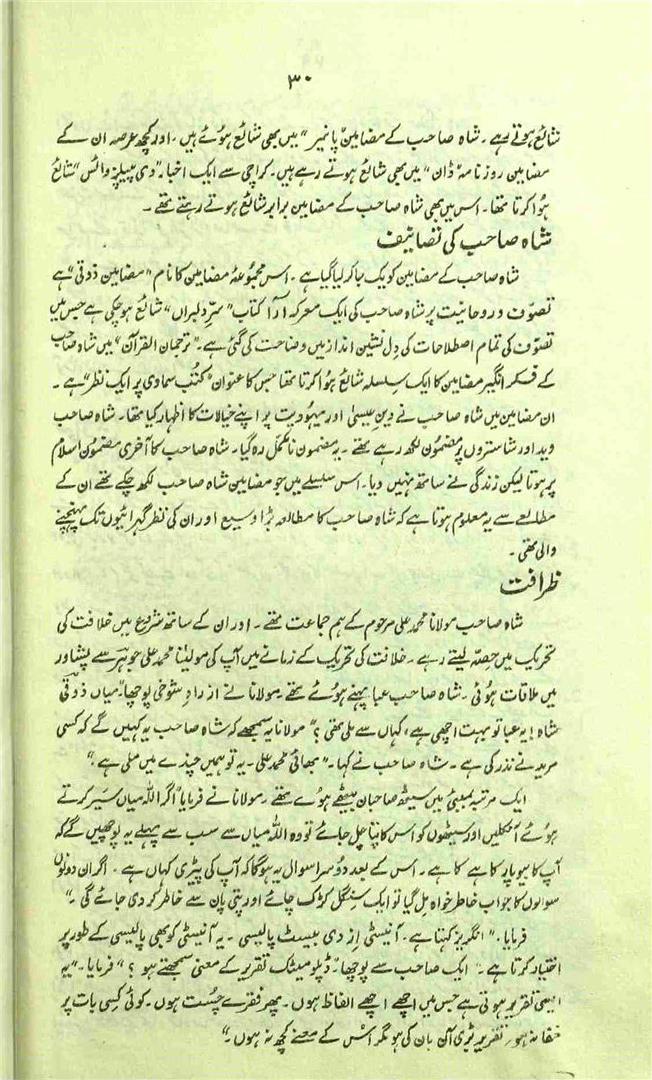 ۳۰
شائع ہوتے رہے ۔ شاہ صاحب کے مضامین "پانیر" میں بھی شائع ہوئے ہیں ۔ اور کچھ عرصہ ان کے
مضامین روزنامہ "ڈان" میں بھی شائع ہوتے رہے ہیں ۔ کراچی سے ایک اخبار "دی پیپلز وائس" شائع
ہؤا کرتا تھا ۔ اس میں بھی شاہ صاحب کے مضامین برابر شائع ہوتے رہتے تھے ۔
شاہ صاحب کی تصانیف
شاہ صاحب کے مضامین کو یک جا کر لیا گیا ہے ۔ اس مجموعۂ مضامین کا نام "مضامین ذوقی" ہے
تصوّف و روحانیت پر شاہ صاحب کی ایک معرکہ آرآ کتاب "سرِّ دلبراں" شائع ہو چکی ہے جس میں
تصوّف کی تمام اصطلاحات کی دِل نشین انداز میں وضاحت کی گئی ہے ۔ "ترجمان القرآن" میں شاہ صاحب
کے فکر انگیز مضامین کا ایک سلسلہ شائع ہؤا کرتا تھا جس کا عنوان "کتُب سماوی پر ایک نظر" ہے ۔
ان مضامین میں شاہ صاحب نے دینِ عیسیٰ اور یہودیت پر اپنے خیالات کا اظہار کیا تھا ۔ شاہ صاحب
وید اور شاستروں پر مضمون لکھ رہے تھے ۔ یہ مضمون نامکمل رہ گیا ۔ شاہ صاحب کا آخری مضمون اسلام
پر ہوتا لیکن زندگی نے ساتھ نہیں دیا ۔ اس سلسلے میں جو مضامین شاہ صاحب لکھ چکے تھے ان کے
مطالعے سے یہ معلوم ہوتا ہے کہ شاہ صاحب کا مطالعہ بڑا وسیع اور ان کی نظر گہرائیوں تک پہنچنے
والی تھی ۔
ظرافت
شاہ صاحب مولانا محمد علی مرحوم کے ہم جماعت تھے ۔ اور ان کے ساتھ شروع میں خلافت کی
تحریک میں حصّہ لیتے رہے ۔ خلافت کی تحریک کے زمانے میں آپ کی مولینٰا محمد علی جوہرؔ سے پشاور
میں ملاقات ہوئی ۔ شاہ صاحب عبا پہنے ہوئے تھے ۔ مولانا نے ازراہِ شوخی پوچھا ۔ "میاں ذوقی
شاہ! یہ عبا تو بہت اچھی ہے، کہاں سے ملی تھی ؟" مولانا یہ سمجھے کہ شاہ صاحب یہ کہیں گے کہ کسی
مرید نے نذر کی ہے ۔ شاہ صاحب نے کہا ۔ "بھائی محمد علی ۔ یہ تو ہمیں چندے میں ملی ہے ۔"
ایک مرتبہ بمبئی میں سیٹھ صاحبان بیٹھے ہوئے تھے ۔ مولانا نے فرمایا "اگر اللہ میاں سَیر کرتے
ہوئے آنکلیں اور سیٹھوں کو اس کا پتا چل جائے تو وہ اللہ میاں سے سب سے پہلے یہ پوچھیں گے کہ
آپ کا بیوپار کاہے کا ہے ۔ اس کے بعد دُوسرا سوال یہ ہوگا کہ آپ کی پیڑی کہاں ہے ۔ اگر ان دونوں
سوالوں کا جواب خاطر خواہ مِل گیا تو ایک سنگل کڑک چائے اور پتی پان سے خاطر کر دی جائے گی ۔"
فرمایا ۔ "انگریز کہتا ہے ۔ آنیسٹی اِز دی بیسٹ پالیسی ۔ یہ آنیسٹی کو بھی پالیسی کے طور پر
اختیار کرتا ہے ۔" ایک صاحب سے پوچھا ۔ "ڈپلومیٹک تقریر کے معنی سمجھتے ہو ؟" فرمایا ۔ "یہ
ایسی تقریر ہوتی ہے جس میں اچھے اچھے الفاظ ہوں ۔ پھر فقرے چست ہوں ۔ کوئی کسی بات پر
خفا نہ ہو، تقریر بڑی آن بان کی ہو مگر اُس کے معنے کچھ نہ ہوں ۔"